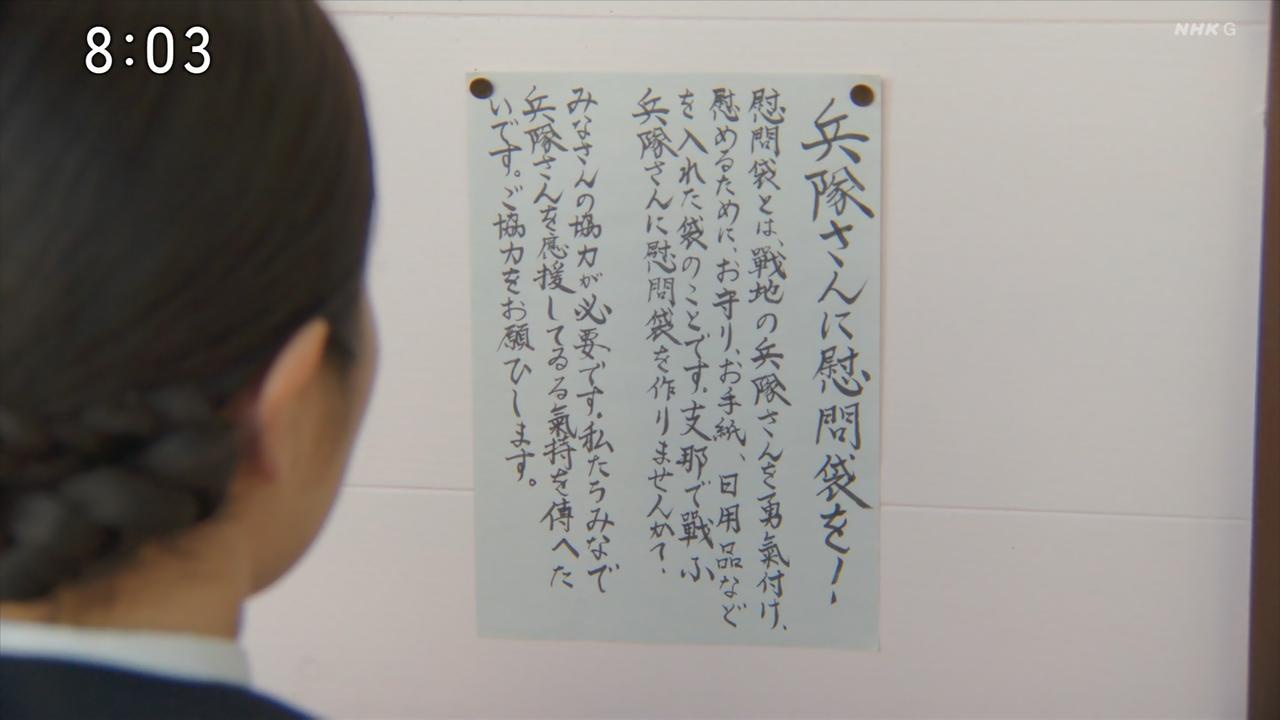 8:03
NHK G
兵隊さんに慰問袋を!
慰問袋とは、戰地の兵隊さんを勇氣付け、
慰めるために、お守り、お手紙、日用品など
を入れた袋のことです。支那で戰ふ
兵隊さんに慰問袋を作りませんか?
みなさんの協力が必要です。私たちみなで
兵隊さんを應援してゐる氣持を傳へた
いです。ご協力をお願ひします。